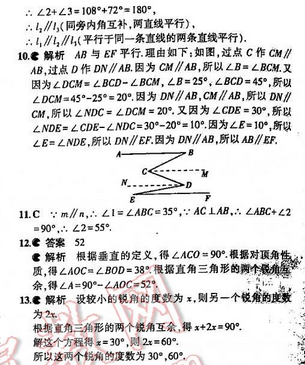 ∴ ∠2+∠3=108°+72°=180°,
∴ l₂∥l₃(同旁内角互补,两直线平行),
∴ l₁∥l₂∥l₃(平行于同一条直线的两条直线平行).
10. 解析 AB与EF平行.理由如下:如图,过点C作CM∥
AB,过点D作DN∥AB.因为CM∥AB,所以∠B=∠BCM.又
因为∠DCM=∠BCD-∠BCM,∠B=25°,∠BCD=45°,所以
∠DCM=45°-25°=20°.因为DN∥AB,CM∥AB,所以DN∥
CM,所以∠NDC=∠DCM=20°.又因为∠CDE=30°,所以
∠NDE=∠CDE-∠NDC=30°-20°=10°.因为∠E=10°,所以
∠E=∠NDE,所以DN∥EF.因为DN∥AB,所以AB∥EF.
A B
C M
N D
E F
11. C ∵ m∥n,∴ ∠1=∠ABC=35°,∵ AC⊥AB,∴ ∠ABC+∠2
=90°,∴ ∠2=55°.
12. 答案 52
解析 根据垂直的定义,得∠ACO=90°.根据对顶角性
质,得∠AOC=∠BOD=38°.根据直角三角形的两个锐角互
余,得∠A=90°-∠AOC=52°.
13. 解析 设较小的锐角的度数为x,则另一个锐角的度数
为2x.
根据直角三角形的两个锐角互余,得x+2x=90°.
解这个方程得x=30°,则2x=60°.
所以这两个锐角的度数为30°,60°.